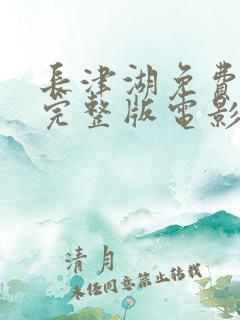 長津湖免費
完整版電影
清月
未经同意禁止转载